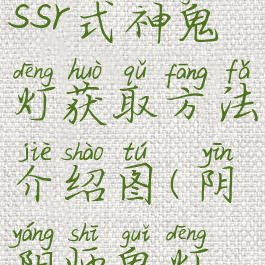 ssr式神鬼
dēng huò qǔ fāng fǎ
灯获取方法
jiè shào tú yīn
介绍图(阴
yáng shī guǐ dēng
阴师鬼灯